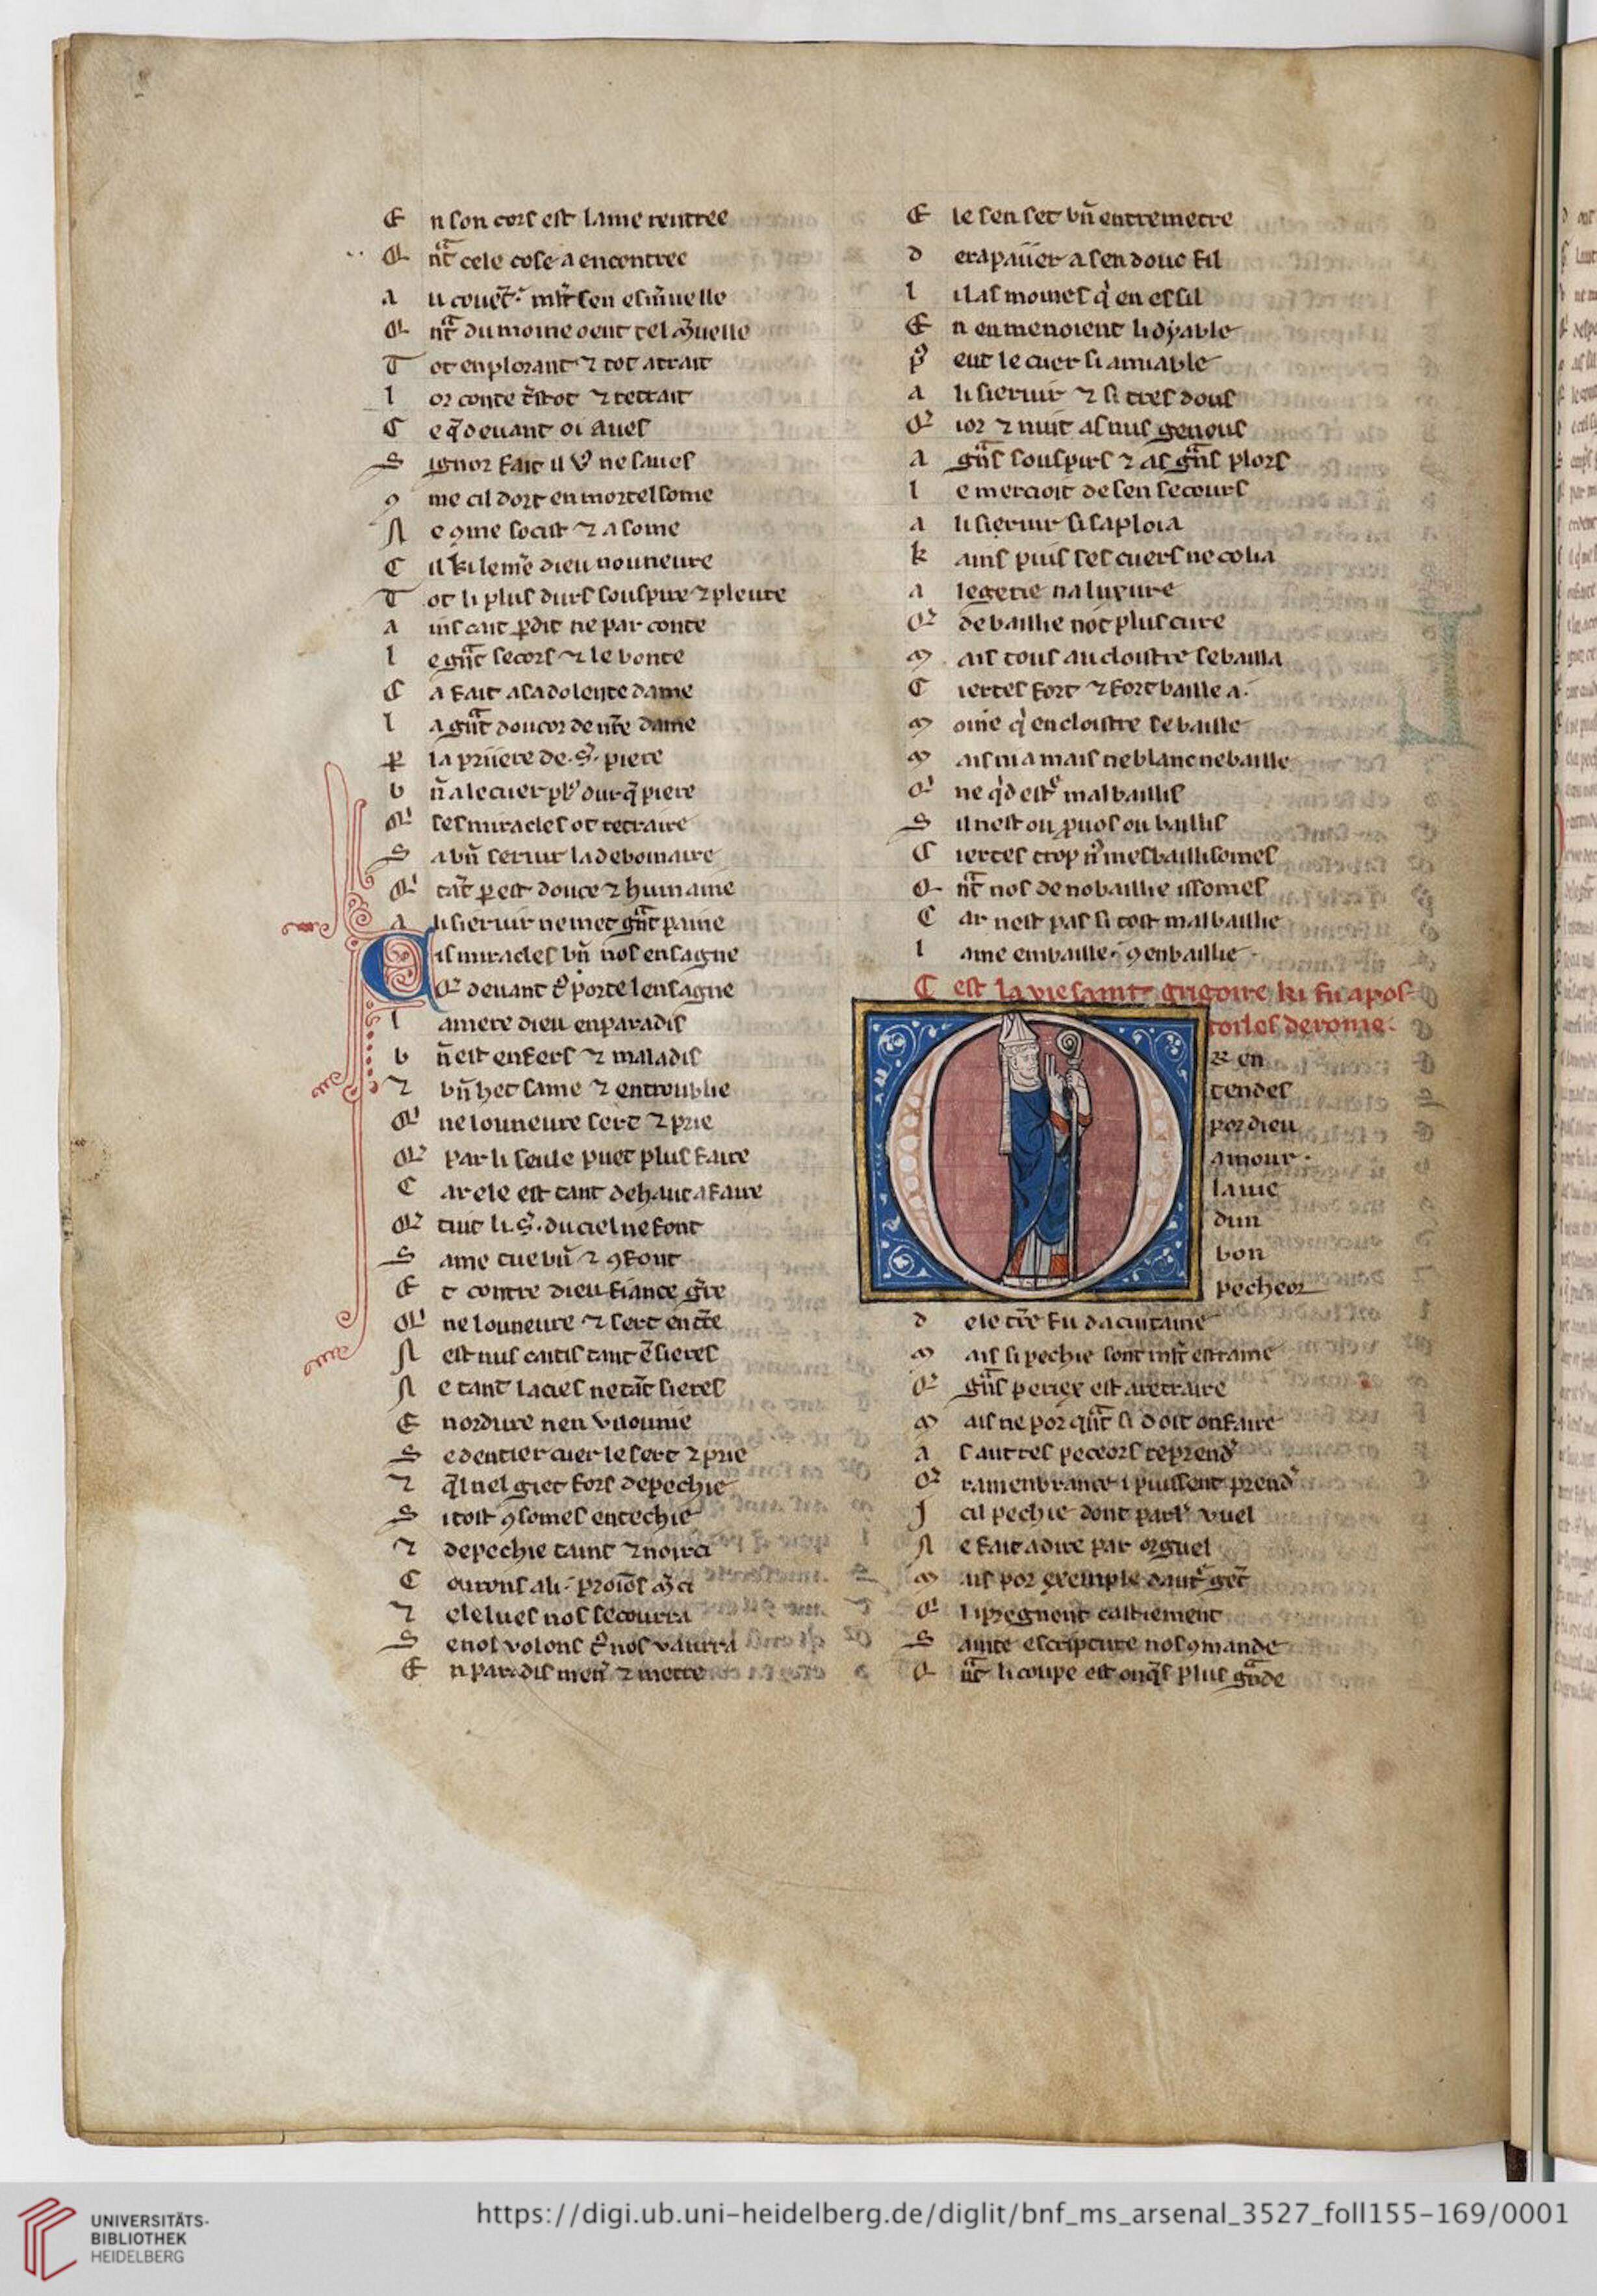 E n son cors est lame rentree
Q̃nt cele cose a encontree
a u couet. mlt sen esm̃uelle
Q̃nt du moine oent tel m̃uelle
T ot en plorant ⁊ tot atrait
l or conte
C e q̃ deuant oi aues
S ignor fait il vͦ ne saues
ꝯ me cil dort en mortel some
N e ꝯme socist ⁊ asome
C il ki le mẽ dieu nouneure
T ot li plus durs souspire ⁊ pleure
a ins cuit ꝑdit ne par conte
l e gñt secors ⁊ le bonte
C a fait a sa dolente dame
l a gñt doucor de nr̃e dame
ꝑ la priiere de .S. piere
b ñ a le cuer plꝰ dur q̃ piere
Qⁱ ses miracles ot retraire
S a bñ seruir la debonaire
Qⁱ tãt ꝑ est douce ⁊ humaine
a li sieruir ne met gñt paine
C is miracles bñ nos ensagne
Q̾ deuant tͦ porte lensagne
l a mere dieu en paradis
b ñ est enfers ⁊ maladis
⁊ bñ het same ⁊ entroublie
Qⁱ ne louneure sert ⁊ prie
Q̾ par li seule puet plus faire
C ar ele est tant de haut afaire
Q̾ tuit li .S. du ciel ne font
S ame tue bñ ⁊ ꝯfont
E t contre dieu fiance
Qⁱ ne louneure ⁊ sert en
N est nus caitis tant ẽ sieres
N e tant lacies ne tãt sieres
E n ordure nen vilounie
S e dentier cuer le sert ⁊ prie
⁊ q̃l nel giet fors de pechie
S i tost ꝯ somes entechie
⁊ de pechie taint ⁊ noirci
C ourons a li. proiõs m̃ci
⁊ ele lues nos secourra
S e nos volons tͦ nos vaurra
E n paradis men̾ ⁊ metre
E le sen set bñ entremetre
d e rapaiier a sen douc fil
l i las moines qⁱ en essil
E n en menoient li dyable
pͦ eut le cuer si amiable
a li sieruir ⁊ si tres dous
Q̾ ior ⁊ nuit as nus genous
a gñs souspirs ⁊ as gñs plors
l e mercioit de sen secours
a li sieruir si saploia
k ains puis ses cuers ne colia
a legerie na luxure
Q̾ de baillie not plus cure
m ais tous au cloistre se bailla
C iertes fort ⁊ fort baille a.
m oine qⁱ en cloistre se baille
m ais ia mais ne blanc ne baille
Qⁱ ne qⁱd estͤ malbaillis
S il nest ou ꝓuos ou baillis
C iertes trop nͦ mesbaillisomes
Q̃nt nos de no baillie issomes
C ar nest pas si tost malbaillie
l ame em baille. ꝯ en baillie
C est la vie saint grigoire ki fu apos-
toiles de rome.
R en
tendes
por dieu
amour.
la uie
dun
bon
pecheor
d ele tr̃e fu dacuitaine
m ais si pechie sont mlt estraine
Q̾ gñs periex est a retraire
m ais ne por qñt si doit on faire
a s autres peceors reprend̾
Q̾ ramenbrance i puissent prend̾
J cil pechie dont parlͬ vuel
N e fait a dire par orguel
m ais por exemple dautͤ gẽt
Qⁱ i pregnent castiement
S ainte escripture nos ꝯmande
Q̃nt li coupe est onq̃s plus gñde
UNIVERSITÄTS-
BIBLIOTHEK
HEIDELBERG
https://digi.ub.uni-heidelberg.de/diglit/bnf_ms_arsenal_3527_foll155-169/0001